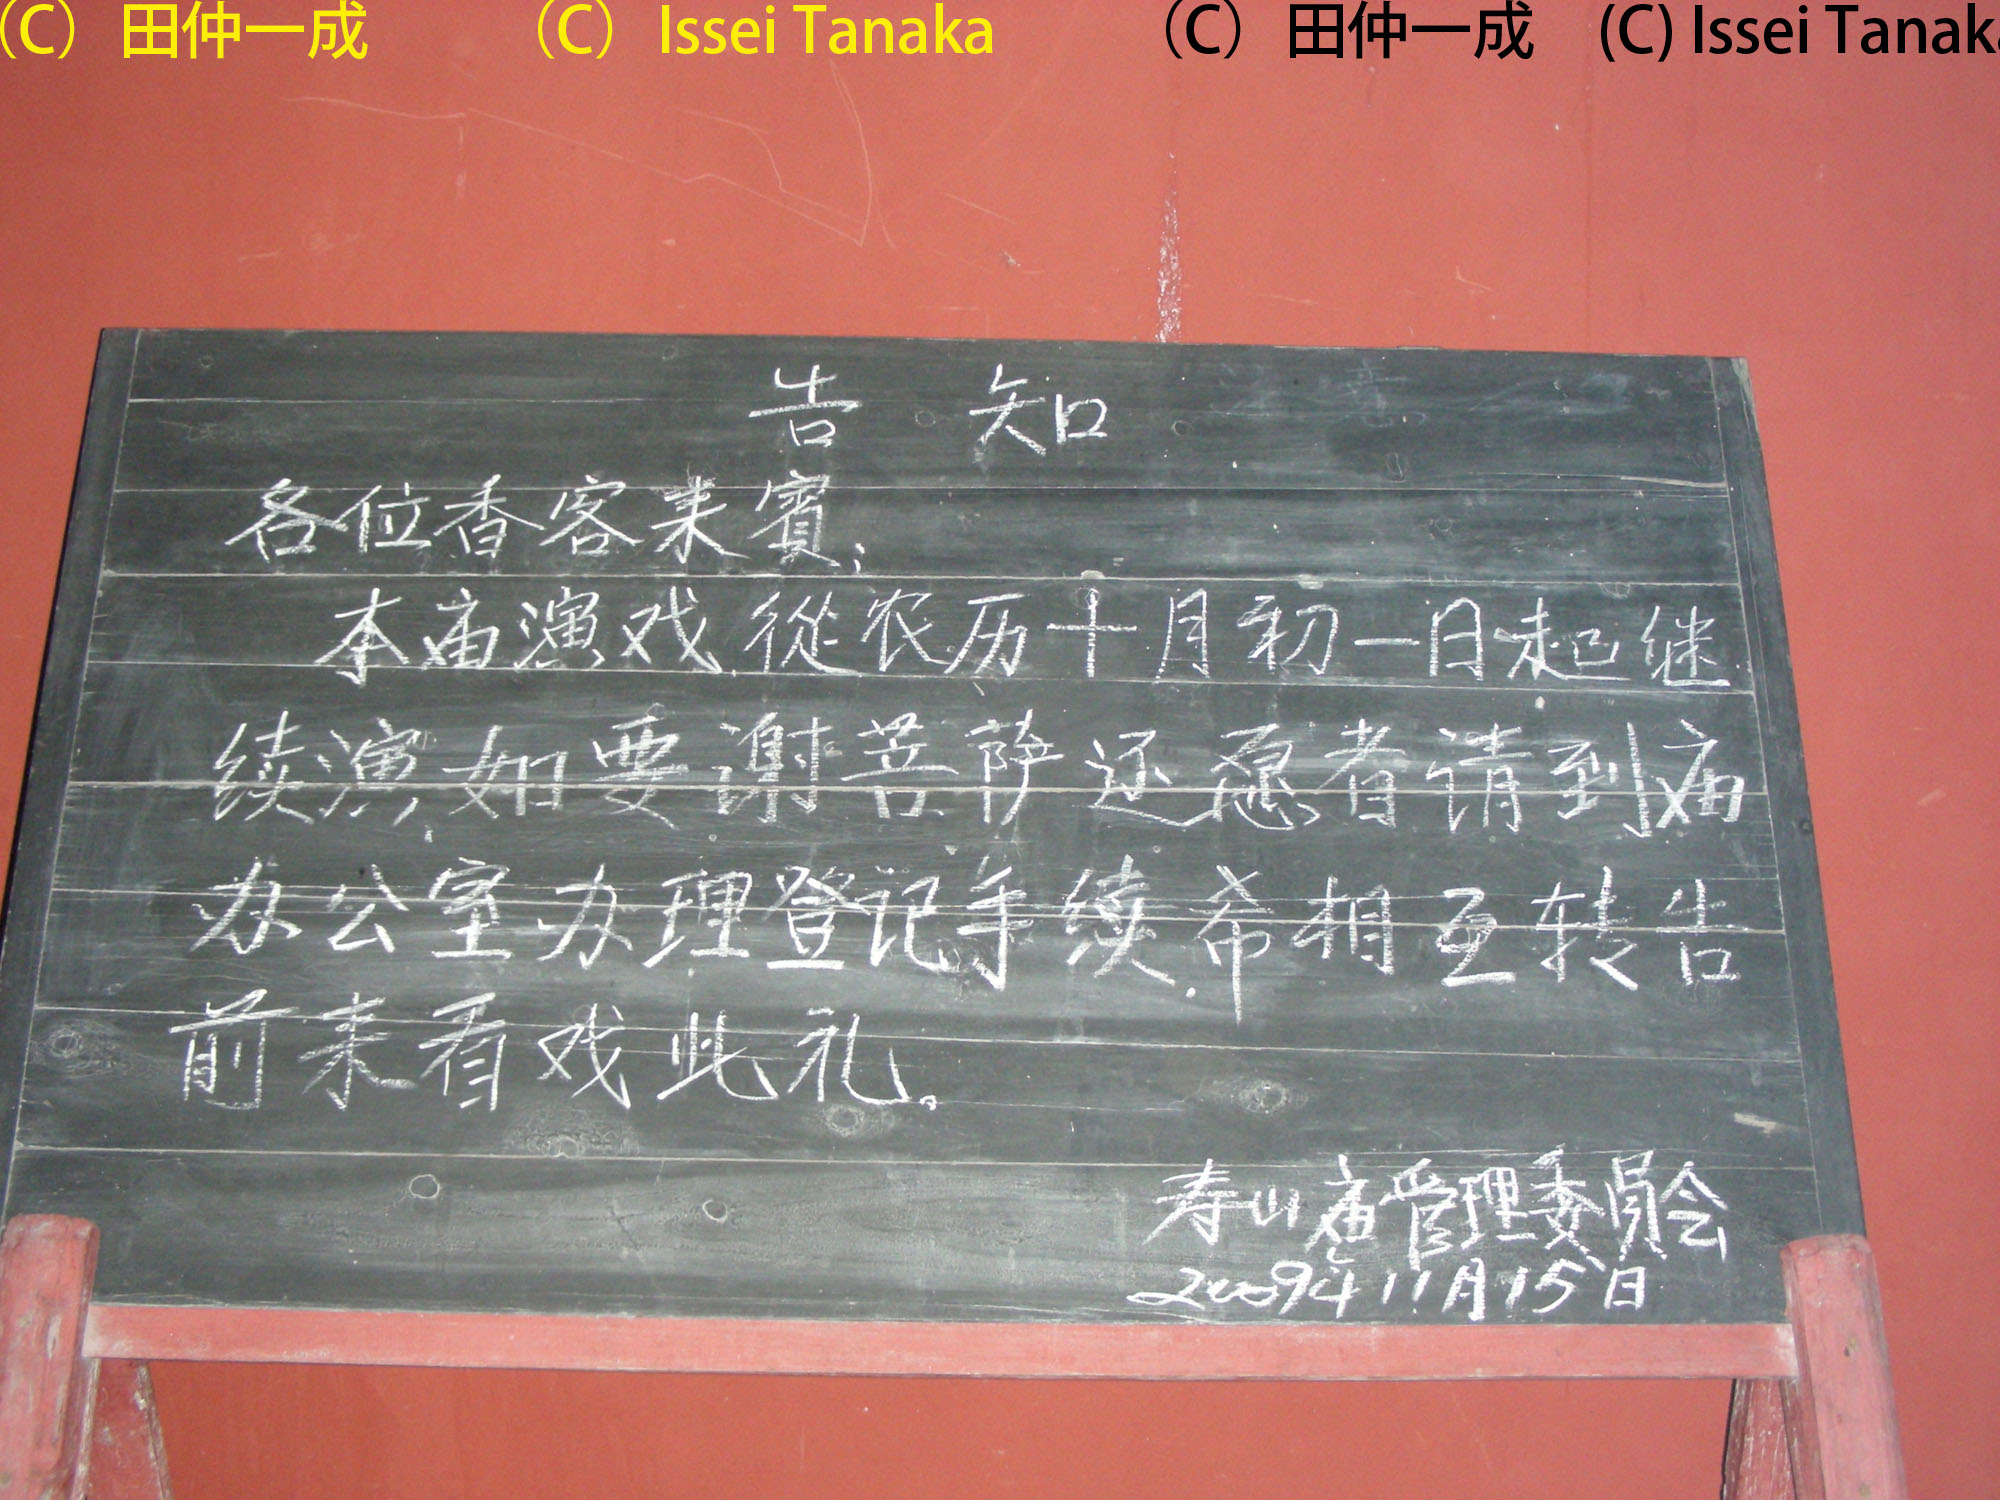 (C) 田仲一成 (C) Issei Tanaka (C) 田仲一成 (C) Issei Tanaka
告 知
各位香客来賓;
本庙演戏從农历十月初一日起继
续演,如要谢菩萨还愿者请到庙
办公室办理登记手续.希相互转告
前来看戏此礼。
寿山庙管理委員会
2009年11月15日